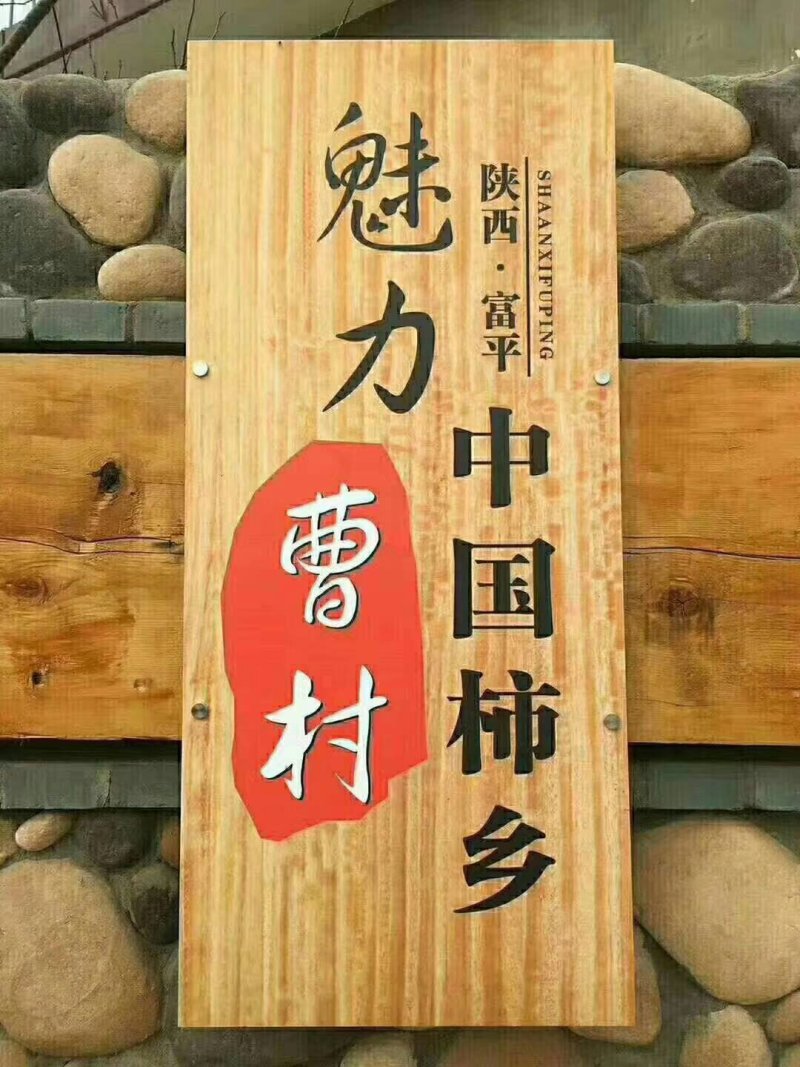 SHAANXIFUPING
陕西·富平
中国柿乡
魅力
曹村